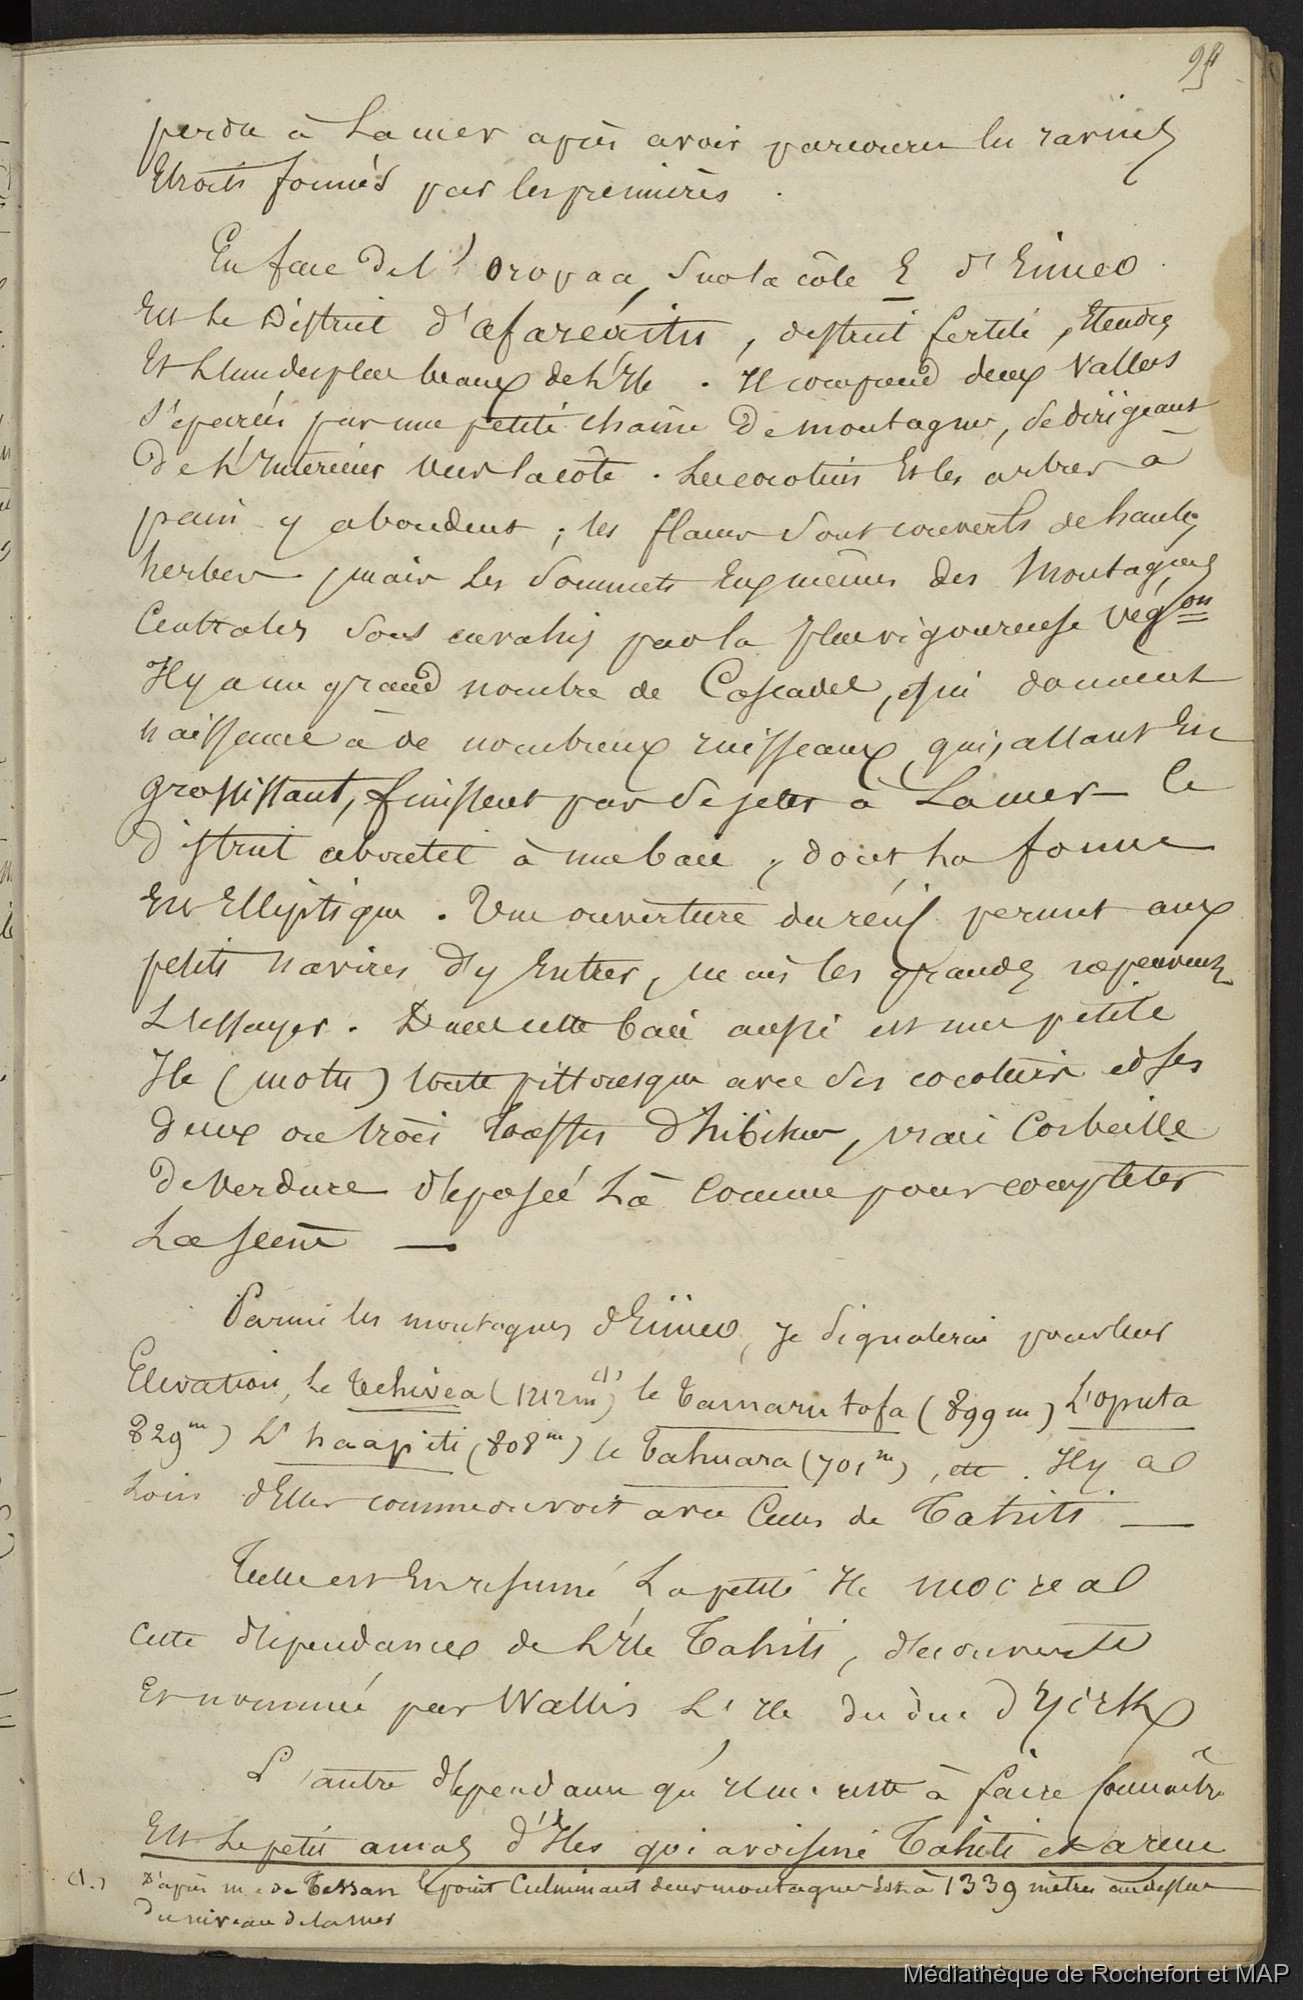 95
perdu à la mer après avoir parcouru les ravins
Etroits formés par les premières .
En face de l'oropaa, sur la côte E d'Eimeo
Est le District d'afaréaitu, district fertile, Etendu
Et l'un des plus beaux de l'Ile . Il comprend deux vallées
séparées par une petite chaîne de montagnes, se dirigeant
De l'Intérieur vers la côte . Les cocotiers Et les arbres à
pain y abondent ; les flancs sont couverts de hautes
herbes, mais les sommets Eux mêmes des Montagnes
Centrales sont envahis par la plus vigoureuse végon
Il y a un grand nombre de Cascades, qui donnent
naissance à de nombreux ruisseaux, qui, allant En
grossissant, finissent par se jeter à la mer – le
District aboutit à une baie, dont la forme
Est Elliptique . Une ouverture du récif permet aux
petits navires d'y Entrer, mais les grands ne peuvent
l'Essayer . Dans cette baie aussi est une petite
Ile (motu) toute pittoresque avec ses cocotiers et ses
deux ou trois touffes d'hibiscus, vraie Corbeille
De Verdure déposée là comme pour completer
La scène —
Parmi les montagnes d'Eimeo, je signalerai pour leur
Elevation, le Tohivea (1212m) (1) le Tamarutofa (899m) L'oputa
829m) L'haapiti (808m) le Tahuara (701m), etc . Il y a
loin d'Elles comme on voit avec Celles de Tahiti —
Telle est En résumé La petite Ile Moorea
cette dépendance de l'Ile Tahiti, découverte
Et nommée par Wallis L'Ile du duc d'York
L'autre dépendance qu'il me reste à faire connaître
Est Le petit amas d'Iles qui avoisine Tahiti et a reçu
(1.) D'après m. de Tessan le point Culminant de ces montagnes est à 1339 mètres au dessus
Du niveau de la mer
Médiathèque de Rochefort et MAP